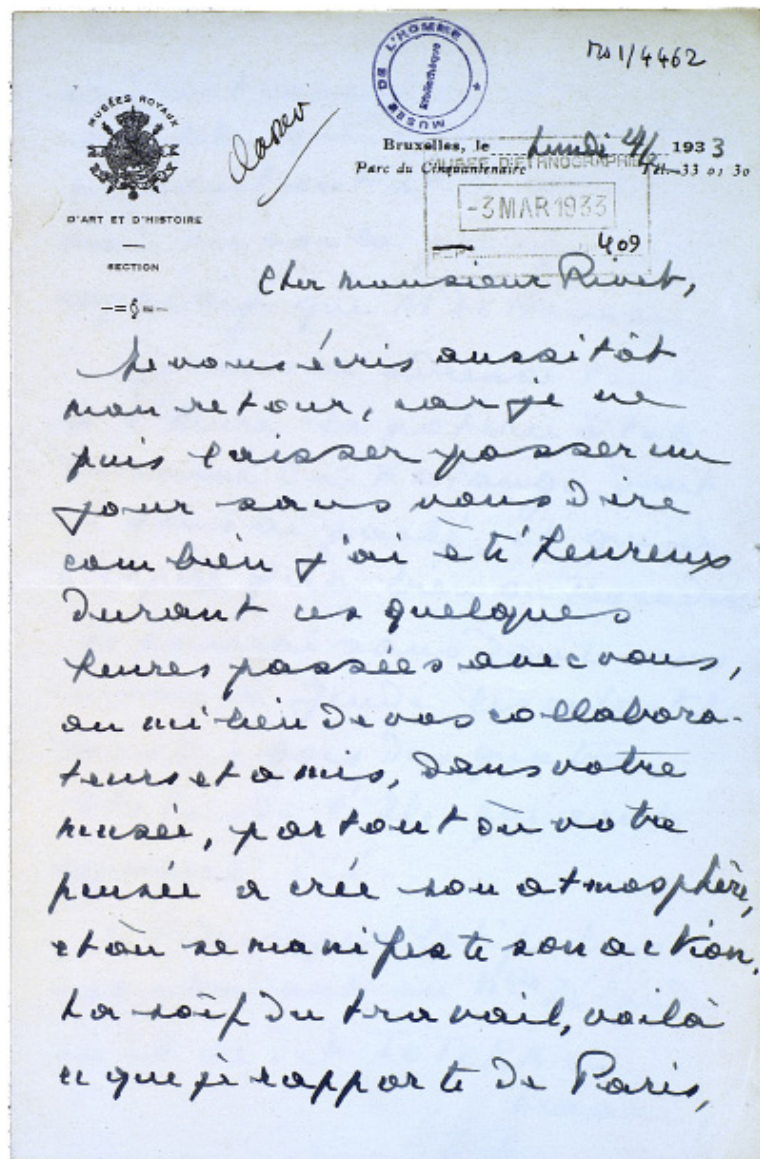 MUSEE DE L'HOMME
Bibliothèque
Ms 1/4462
MUSÉES ROYAUX
D'ART ET D'HISTOIRE
SECTION
classer
Bruxelles, le Lundi 1933
Parc du Cinquantenaire Tél. 33 01 30
MUSEE D'ETHNOGRAPHIE
-3 MAR 1933
409
Cher Monsieur Rivet,
Je vous écris aussitôt
mon retour, car je ne
puis laisser passer un
jour sans vous dire
combien j'ai été heureux
durant ces quelques
heures passées avec vous,
au milieu de vos collabora-
teurs et amis, dans votre
musée, partout où votre
pensée a créé son atmosphère,
et où se manifeste son action.
La soif du travail, voilà
ce que je rapporte de Paris,